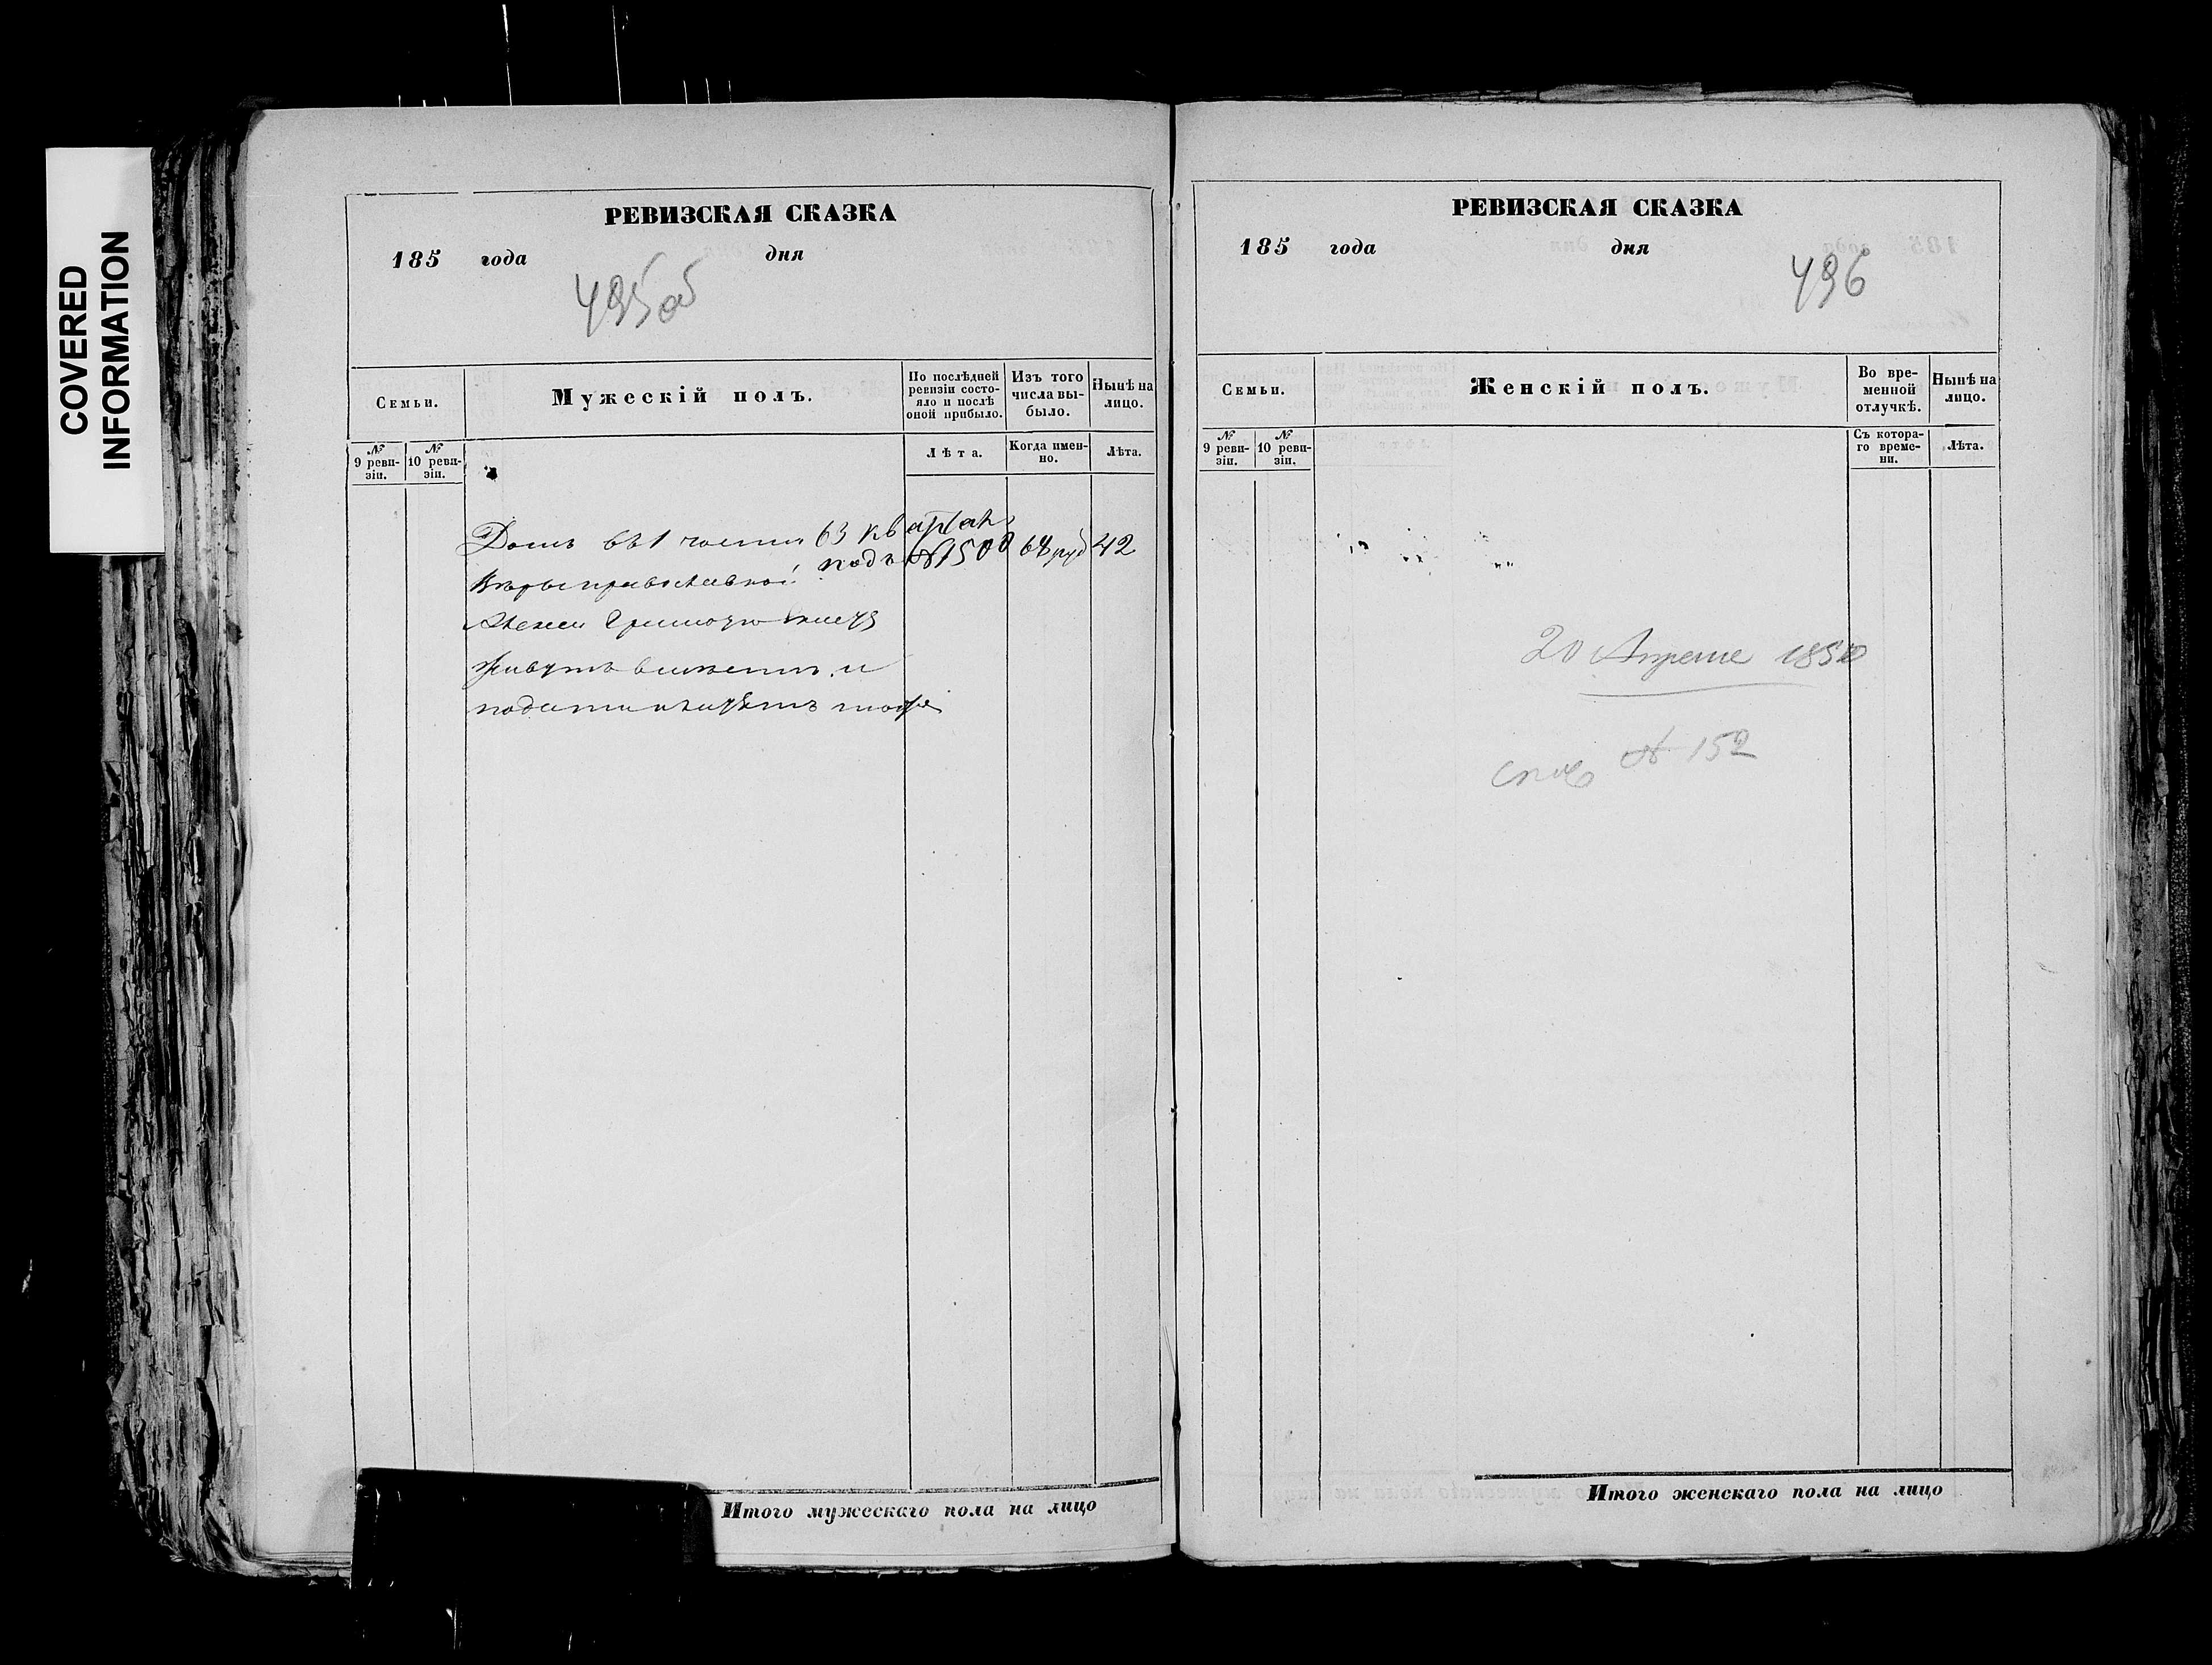 COVERED
INFORMATION
РЕВИЗСКАЯ СКАЗКА
185 года дня
495об
Семьи.
Мужескій полъ.
По послѣдней ревизіи состояло и послѣ оной прибыло.
Изъ того числа выбыло.
Нынѣ на лицо.
№ 9 ревизіи.
№ 10 ревизіи.
Лѣта.
Когда именно.
Лѣта.
Домъ въ 1 части 63 квартал
подъ №1500 64 руб 42
Вѣры православной
Алексей
живутъ вместѣ и
подати
РЕВИЗСКАЯ СКАЗКА
185 года дня
496
Семьи.
Женскій полъ.
Во временной отлучкѣ.
Нынѣ на лицо.
№ 9 ревизіи.
№ 10 ревизіи.
Съ котораго времени.
Лѣта.
20 Апреля 1858
№ 152
Итого мужескаго пола на лицо
Итого женскаго пола на лицо